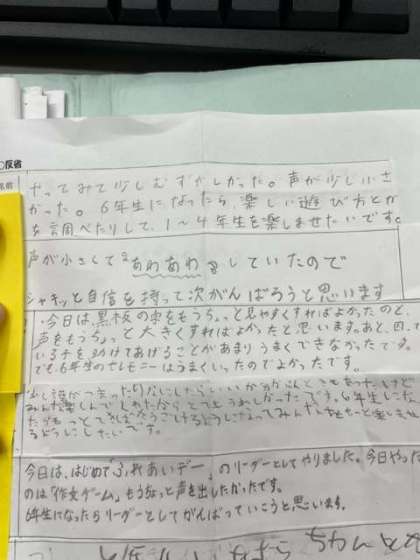 反省
名前
やってみて少しむずかしかった。声が少し小さ
かった。6年生になったら、楽しい遊び方とか
を調べたりして、1〜4年生を楽しませたいです。
声が小さくて、あわあわしていたので
シャキッと自信を持って次がんばろうと思います
・今日は、黒板の字をもうちょっと見やすくすればよかったのと、
声をもうちょっと大きくすればよかったと思います。あと、困って
いる子を助けてあげることがあまりうまくできなかったです。
でも、6年生のセレモニーはうまくいったのでよかったです。
みんな楽しんで とてもうれしかったです。6年生になっ
たらもっと みんなを
ようにしたいです。
今日は、はじめて「ふれあいデー」のリーダーとしてやりました。今日やった
のは「作文ゲーム」もうちょっと声を出したかったです。
6年生になったらリーダーとしてがんばっていこうと思います。